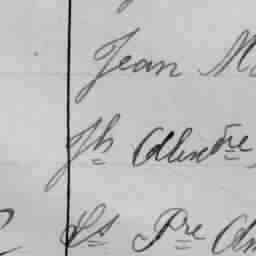 Jean M
Jh Alexdre
Ls Pre An